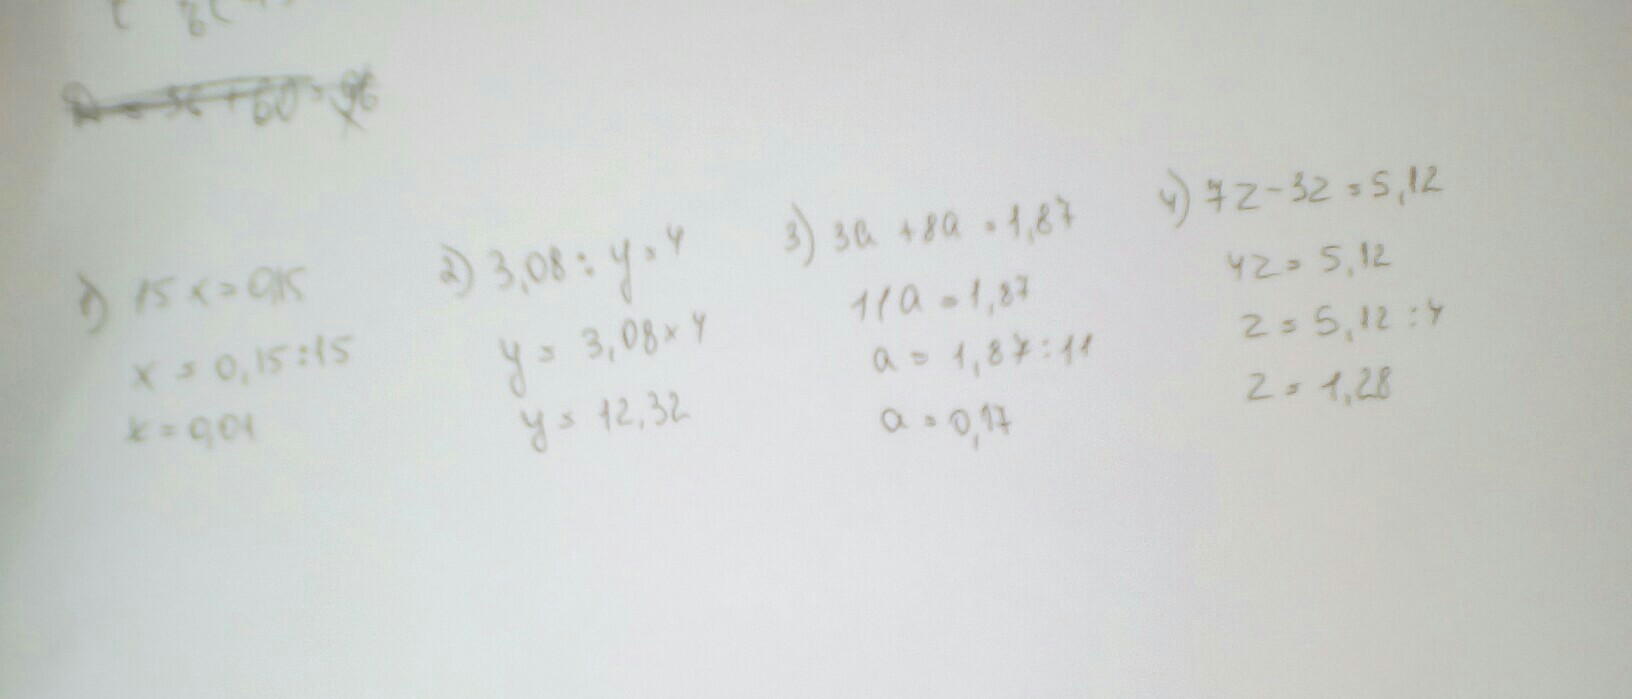 1) 15x=0,15
x=0,15:15
x=0,01
2) 3,08:y=4
y=3,08×4
y=12,32
3) 3a+8a=1,87
11a=1,87
a=1,87:11
a=0,17
4) 7z-3z=5,12
4z=5,12
z=5,12:4
z=1,28